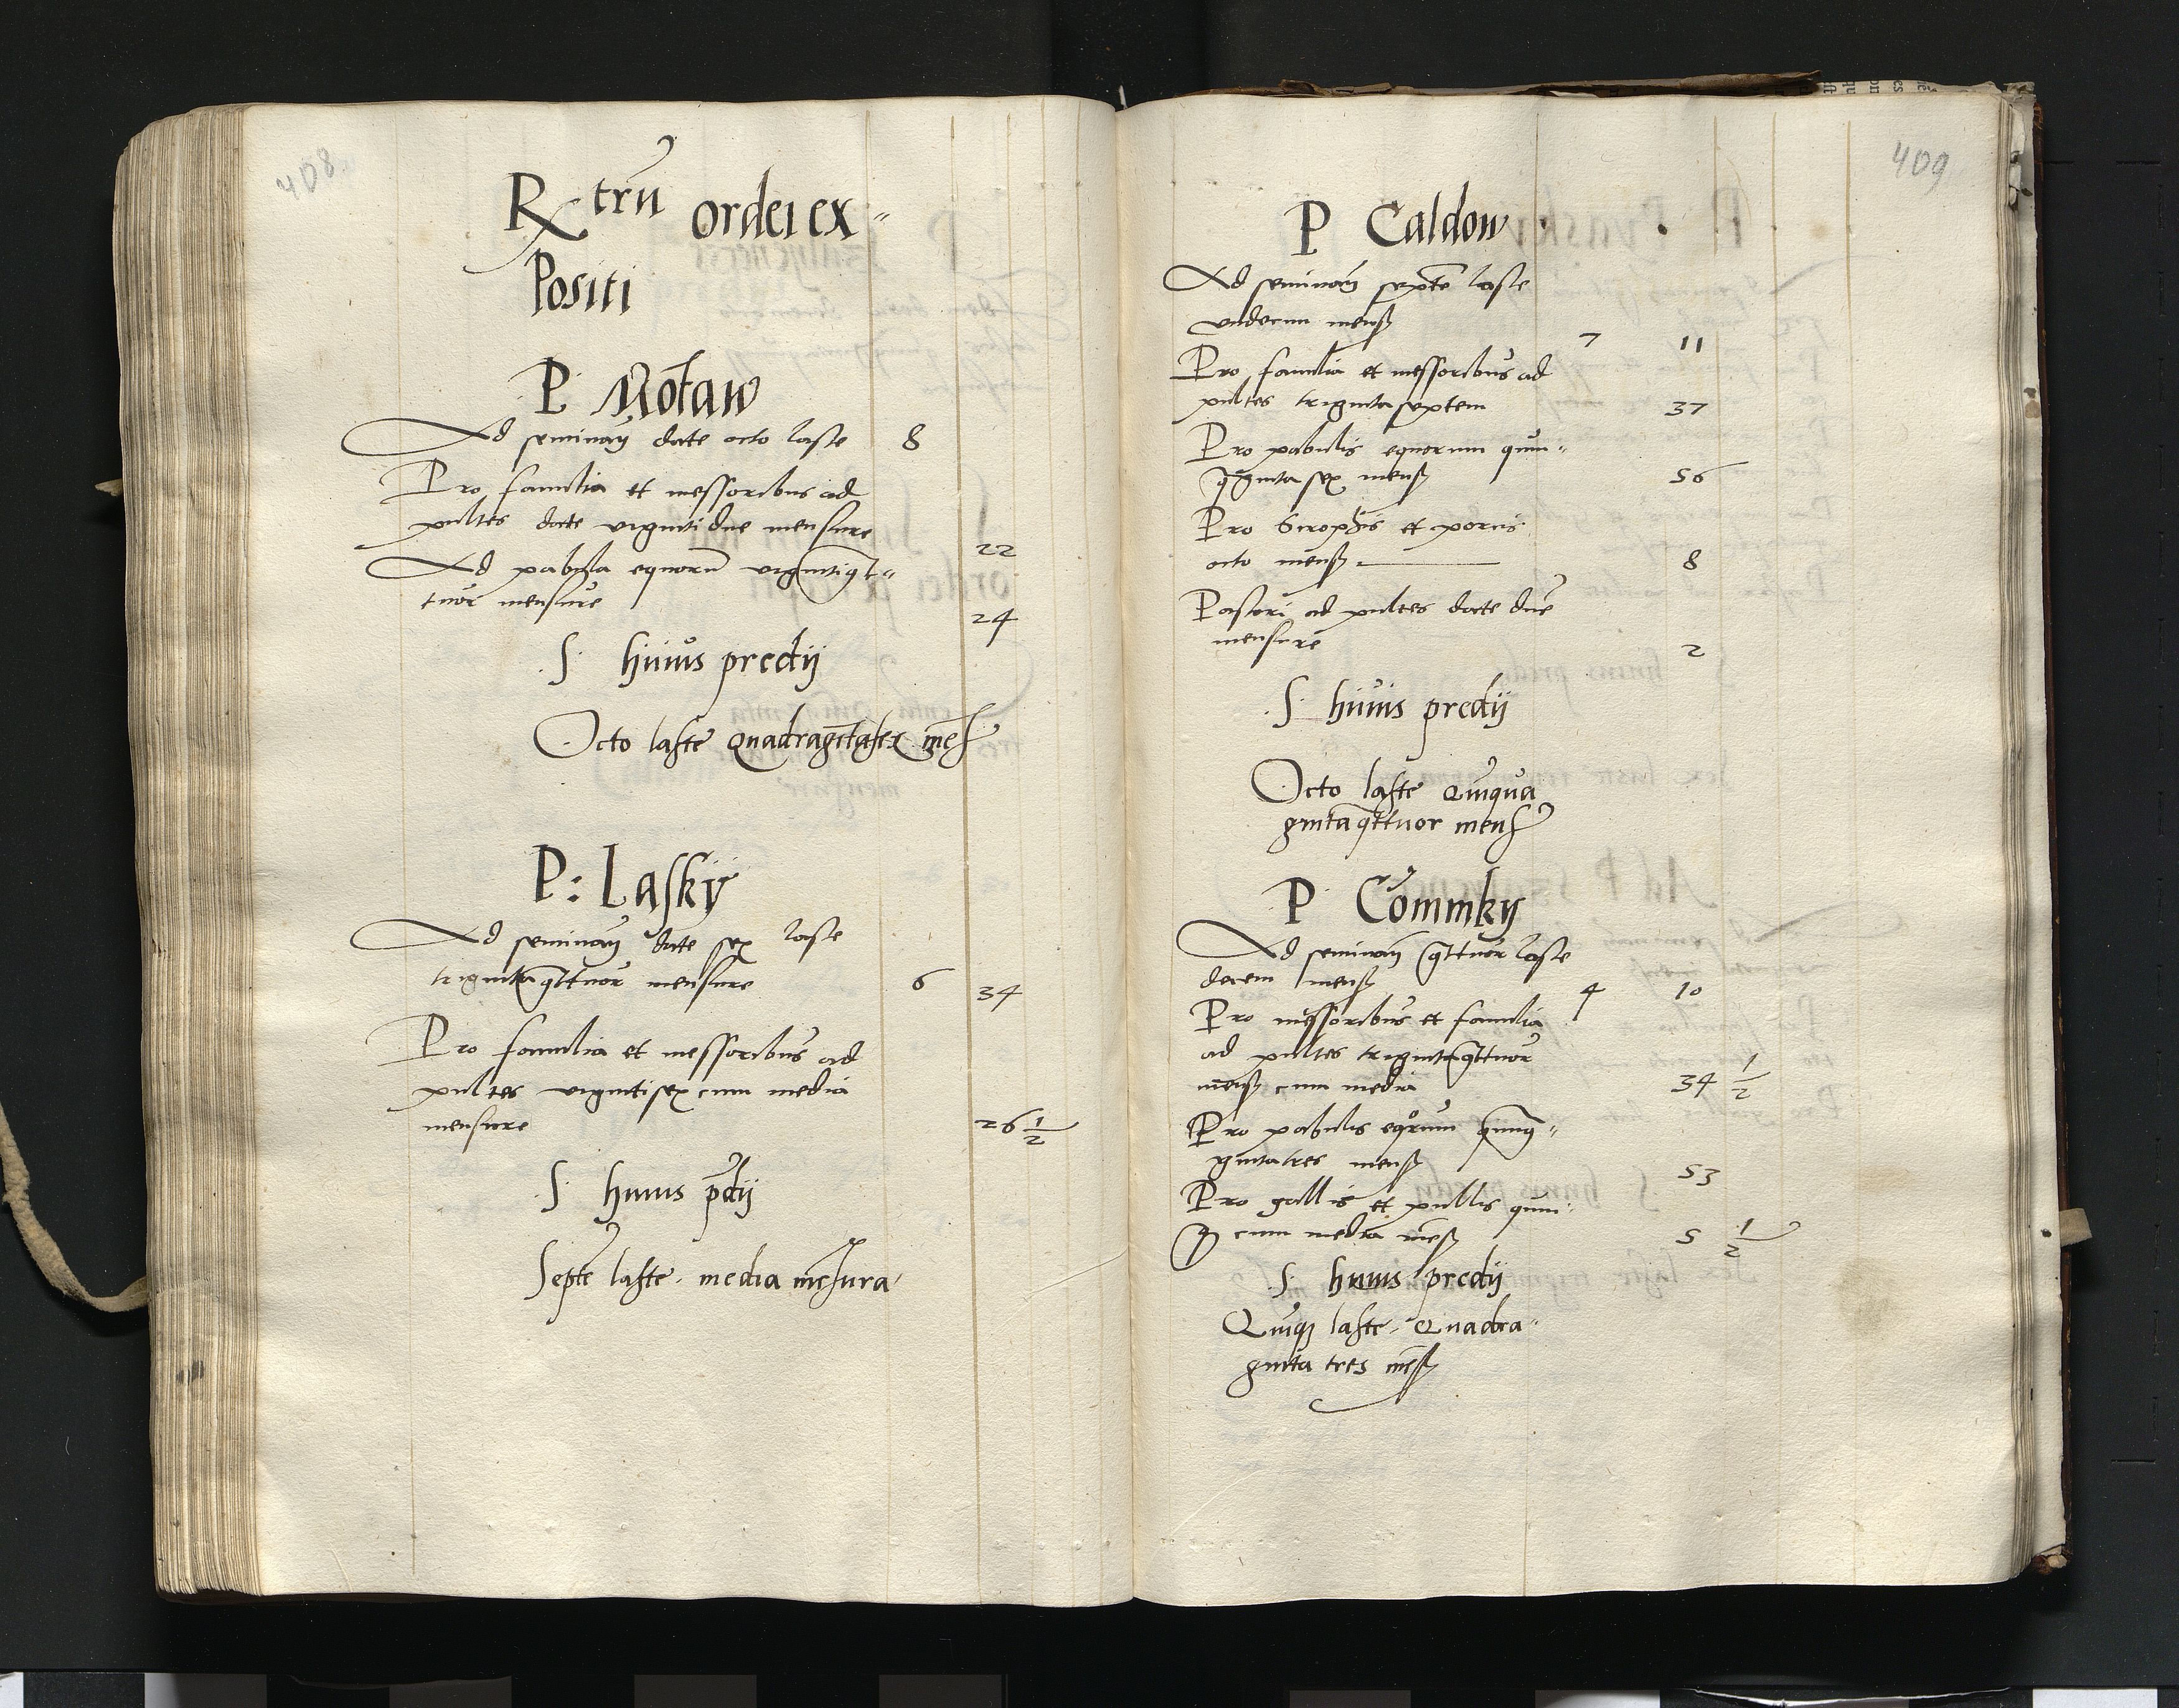 408
Rxtrū ordei ex„
Positi
P Mõtaw
Ad seminaŋ date octo laste 8
Pro familia et messoribus ad
pultes date vigintidue mensure 22
Ad pabula equorū vigintiq̄t„
tuor mensure 24
S huius predij
Octo laste Quadragītasex mēs
P: Lasky
Ad seminaŋ date sex laste
trigintaq̄ttuor mensure 6 34
Pro familia et messoribus ad
pultes vigintisex cum media
mensure 26 1/2
S huius p̄dij
Septē laste media mēsura
409
P Caldow
Ad seminaŋ septē laste
undecim mensß 7 11
Pro familia et messoribus ad
pultes trigintaseptem 37
Pro pabulis equorum quin„
q̄gintasex mensß 56
Pro Scrophis et porcis
octo mensß 8
Pastori ad pultes date due
mensure 2
S huius predij
Octo laste Quinqua
gintaq̄ttuor mens
P Commky
Ad seminaŋ q̄ttuor laste
decem mensß 4 10
Pro messoribus et familia
ad pultes trigintaq̄ttuor
mensß cum media 34 1/2
Pro pabulis eqorum quinq̄„
gintatres mensß 53
Pro gallis et pullis quin„
q̄ cum media mēsß 5 1/2
S huius predij
Quīqꝫ laste Quadra„
ginta tres mēsß